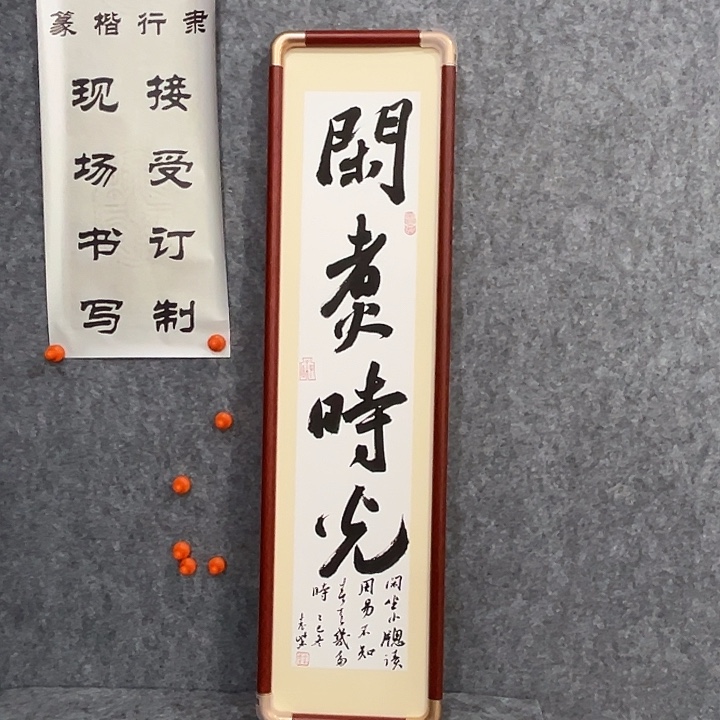 篆楷行隶
接受订制
现场书写
閑煑時光
闲坐小牕读
周易不知
春去幾多
時 乙巳冬